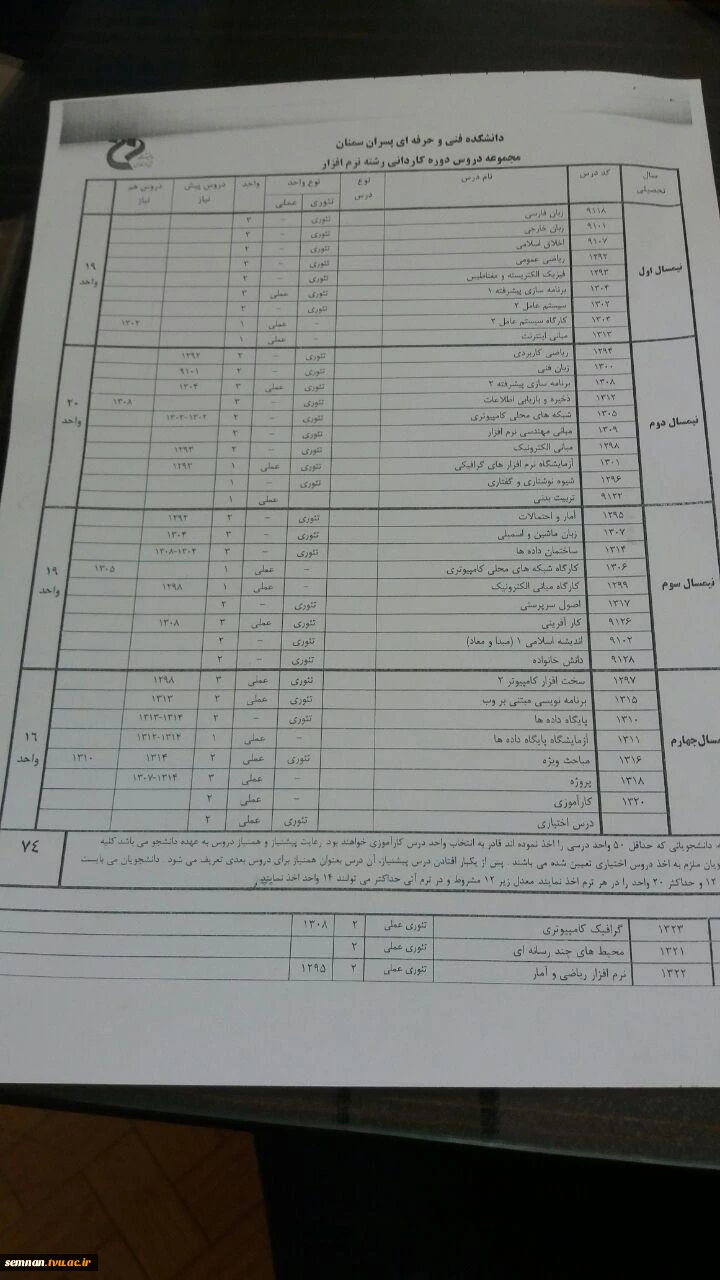 دانشکده فنی و حرفه ای پسران سمنان
مجموعه دروس دوره کاردانی رشته نرم افزار
سال تحصیلی کد درس نام درس نوع درس نوع واحد تئوری عملی واحد دروس پیش نیاز دروس هم نیاز
نیمسال اول
۹۱۱۸ زبان فارسی تئوری - ۳
۹۱۰۱ زبان خارجی تئوری - ۳
۹۱۰۷ اخلاق اسلامی تئوری - ۲
۱۲۹۲ ریاضی عمومی تئوری - ۳
۱۲۹۳ فیزیک الکتریسته و مغناطیس تئوری - ۲
۱۳۰۴ برنامه سازی پیشرفته ۱ تئوری عملی ۳
۱۳۰۲ سیستم عامل ۲ تئوری - ۲
۱۳۰۳ کارگاه سیستم عامل ۲ - عملی ۱ ۱۳۰۲
۱۳۱۳ مبانی اینترنت - عملی ۱
۱۹ واحد
نیمسال دوم
۱۲۹۴ ریاضی کاربردی تئوری - ۲ ۱۲۹۲
۱۳۰۰ زبان فنی تئوری - ۲ ۹۱۰۱
۱۳۰۸ برنامه سازی پیشرفته ۲ تئوری عملی ۳ ۱۳۰۴
۱۳۱۲ ذخیره و بازیابی اطلاعات تئوری - ۳ ۱۳۰۸
۱۳۰۵ شبکه های محلی کامپیوتری تئوری - ۲ ۱۳۰۲-۱۳۰۳
۱۳۰۹ مبانی مهندسی نرم افزار تئوری - ۲
۱۲۹۸ مبانی الکترونیک تئوری - ۲ ۱۲۹۳
۱۳۰۱ آزمایشگاه نرم افزار های گرافیکی تئوری عملی ۱ ۱۲۹۲
۱۲۹۶ شیوه نوشتاری و گفتاری تئوری - ۱
۹۱۲۲ تربیت بدنی عملی ۱
۲۰ واحد
نیمسال سوم
۱۲۹۵ آمار و احتمالات تئوری - ۲ ۱۲۹۲
۱۳۰۷ زبان ماشین و اسمبلی تئوری - ۳ ۱۳۰۴
۱۳۱۴ ساختمان داده ها تئوری - ۳ ۱۳۰۴-۱۳۰۸
۱۳۰۶ کارگاه شبکه های محلی کامپیوتری - عملی ۱ ۱۳۰۵
۱۲۹۹ کارگاه مبانی الکترونیک - عملی ۱ ۱۲۹۸
۱۳۱۷ اصول سرپرستی تئوری - ۲
۹۱۲۶ کار آفرینی تئوری عملی ۳ ۱۳۰۸
۹۱۰۲ اندیشه اسلامی ۱ (مبدا و معاد) تئوری - ۲
۹۱۲۸ دانش خانواده تئوری - ۲
۱۹ واحد
سال چهارم
۱۲۹۷ سخت افزار کامپیوتر ۲ تئوری عملی ۳ ۱۲۹۸
۱۳۱۵ برنامه نویسی مبتنی بر وب تئوری عملی ۲ ۱۳۱۳
۱۳۱۰ پایگاه داده ها تئوری - ۲ ۱۳۱۴-۱۳۱۳
۱۳۱۱ آزمایشگاه پایگاه داده ها - عملی ۱ ۱۳۱۴-۱۳۱۲
۱۳۱۶ مباحث ویژه تئوری عملی ۲ ۱۳۱۴ ۱۳۱۰
۱۳۱۸ پروژه - عملی ۳ ۱۳۱۴-۱۳۰۷
۱۳۲۰ کارآموزی - عملی ۲
درس اختیاری تئوری عملی ۲
۱۶ واحد
دانشجویانی که حداقل ۵۰ واحد درسی را اخذ نموده اند قادر به انتخاب واحد درس کارآموزی خواهند بود رعایت پیشنیاز و همنیاز دروس به عهده دانشجو می باشد کلیه
ملزم به اخذ دروس اختیاری تعیین شده می باشند . پس از یکبار افتادن درس پیشنیاز، آن درس بعنوان همنیاز برای دروس بعدی تعریف می شود دانشجویان می بایست
۱۲ و حداکثر ۲۰ واحد را در هر ترم اخذ نمایند. معدل زیر ۱۲ مشروط و در ترم آتی حداکثر می توانند ۱۴ واحد اخذ نمایند.
۷۴
۱۳۲۳ گرافیک کامپیوتری تئوری عملی ۲ ۱۳۰۸
۱۳۲۱ محیط های چند رسانه ای تئوری عملی ۲
۱۳۲۲ نرم افزار ریاضی و آمار تئوری عملی ۲ ۱۲۹۵
semnan.tvu.ac.ir